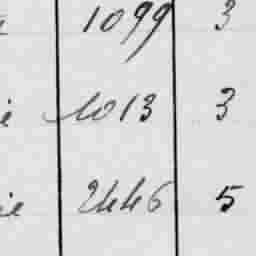 1099 3
1013 3
2446 5